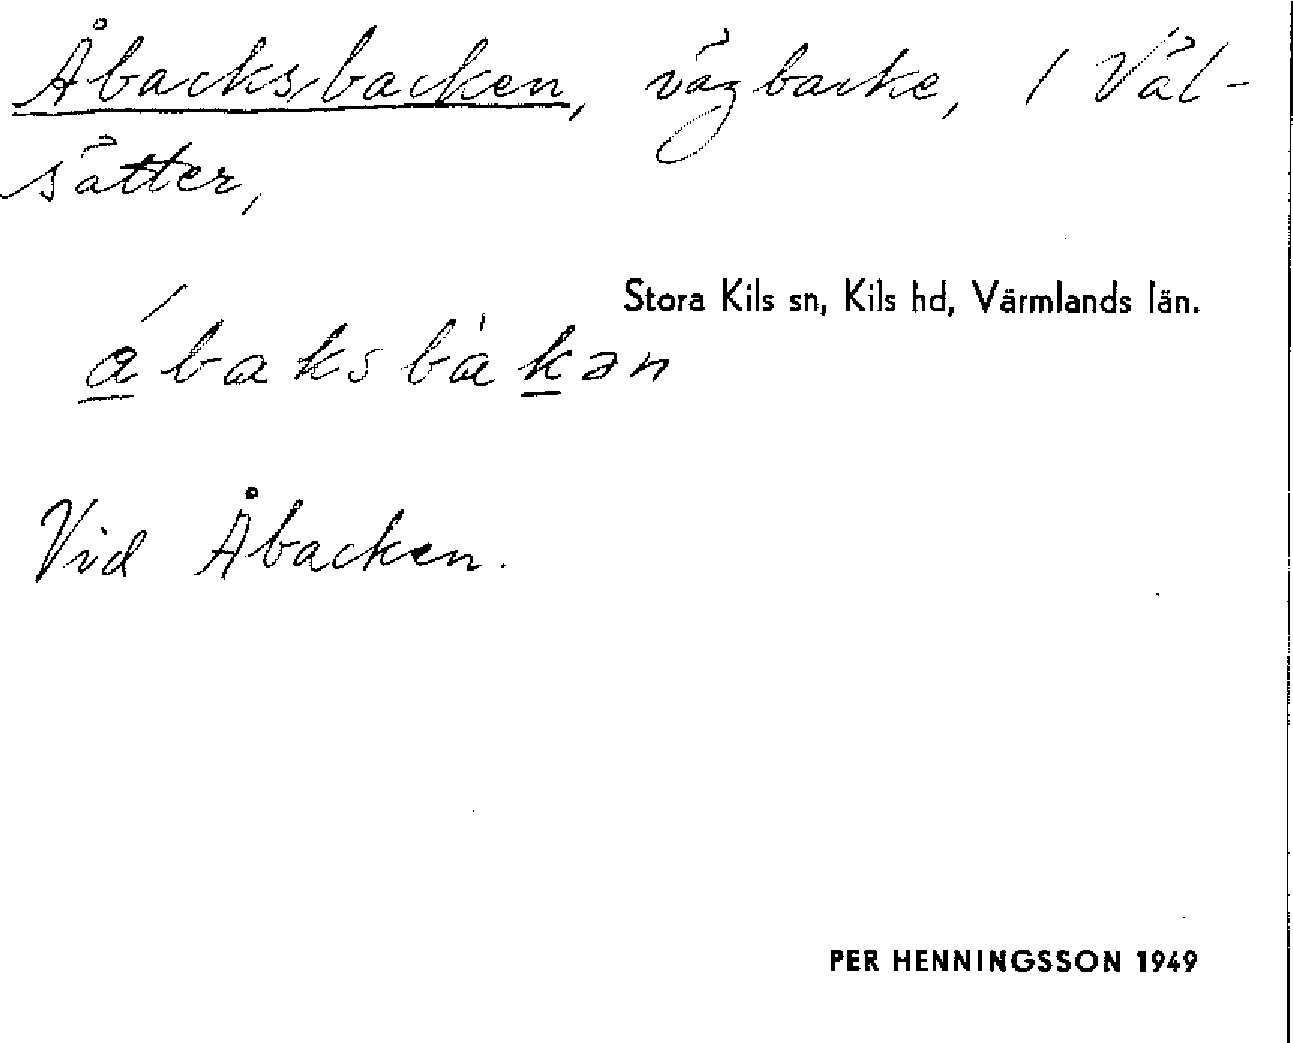 Åbacksbacken, vägbacke, / Väl-
sätter,
Stora Kils sn, Kils hd, Värmlands län.
á̲baksbàk̲ən
Vid Åbacken.
PER HENNINGSSON 1949